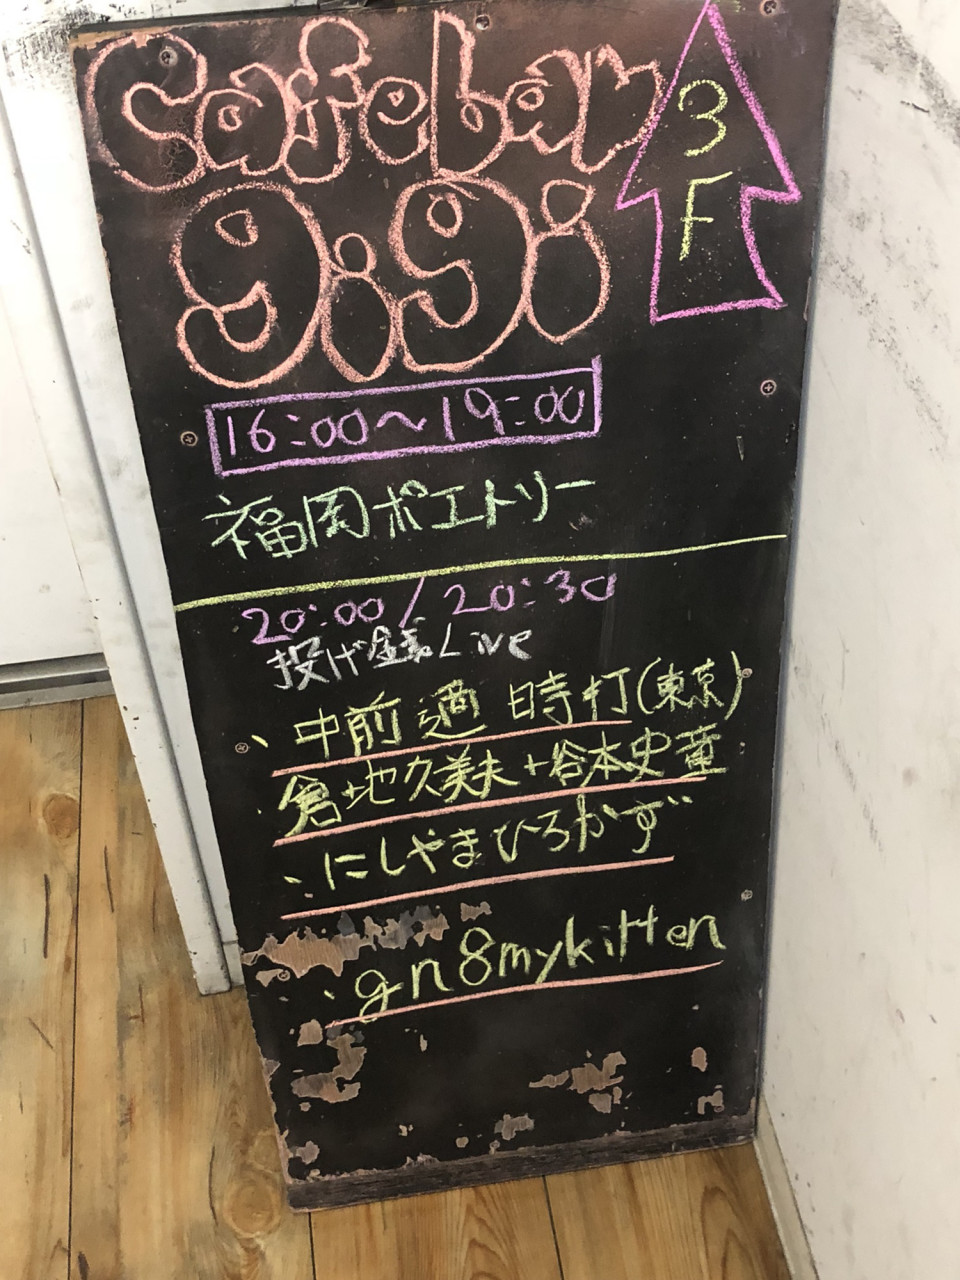 Cafebar
gigi
3
F
16:00〜19:00
福岡ポエトリー
20:00/20:30
投げ銭Live
、中前適時打(東京)
・倉地久美夫+谷本史童
、にしやまひろかず
・gn8mykitten